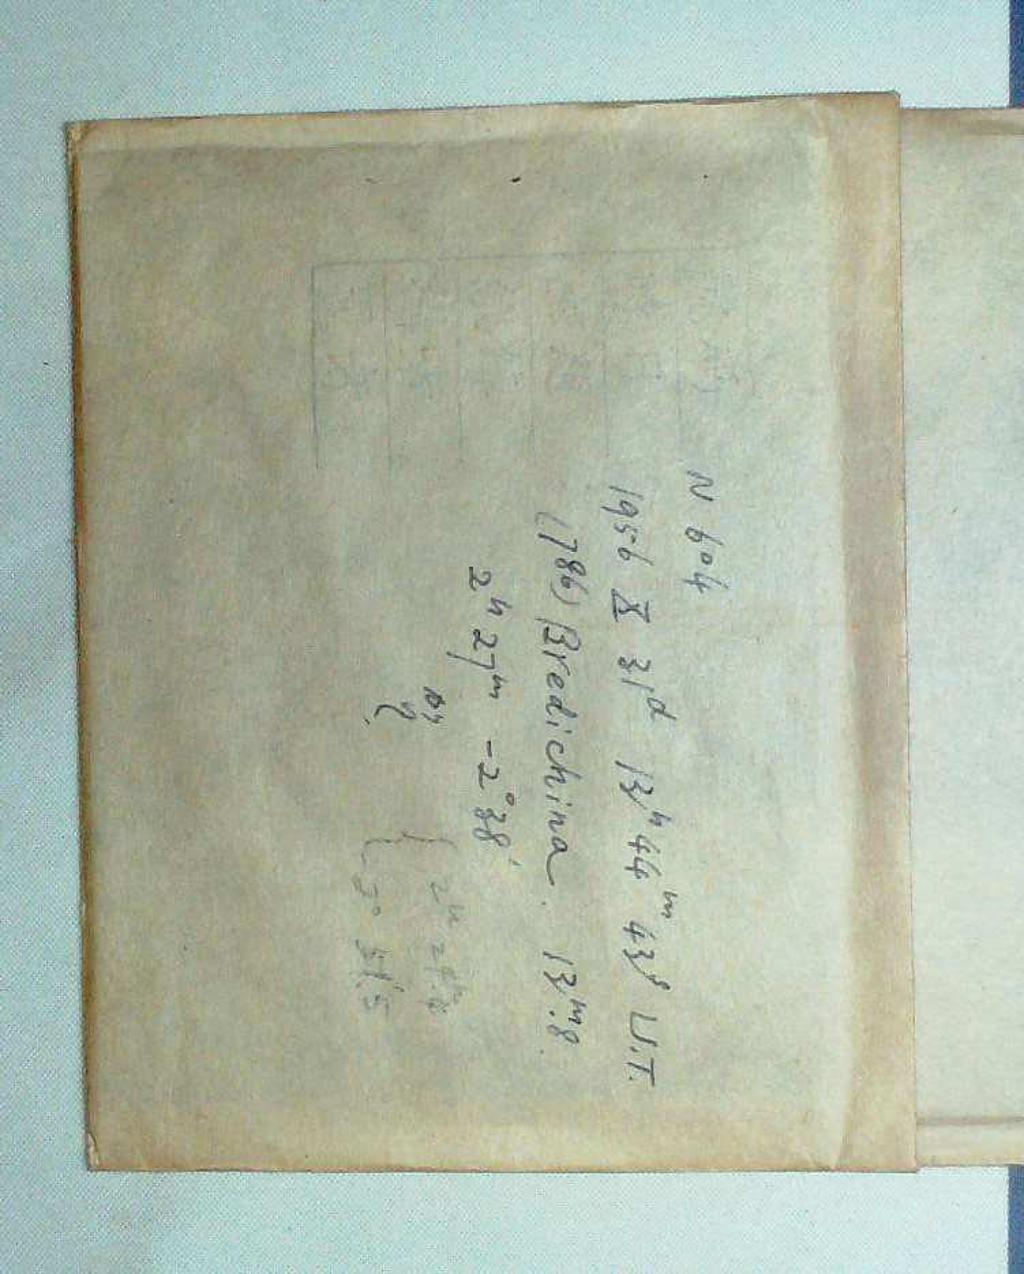 N 604
1956 X 31ᵈ 13ʰ 44ᵐ 43ˢ U.T.
(786) Bredichina. 13ᵐ.8
2ʰ 27ᵐ -2°38′
{ 2ʰ
51′.5